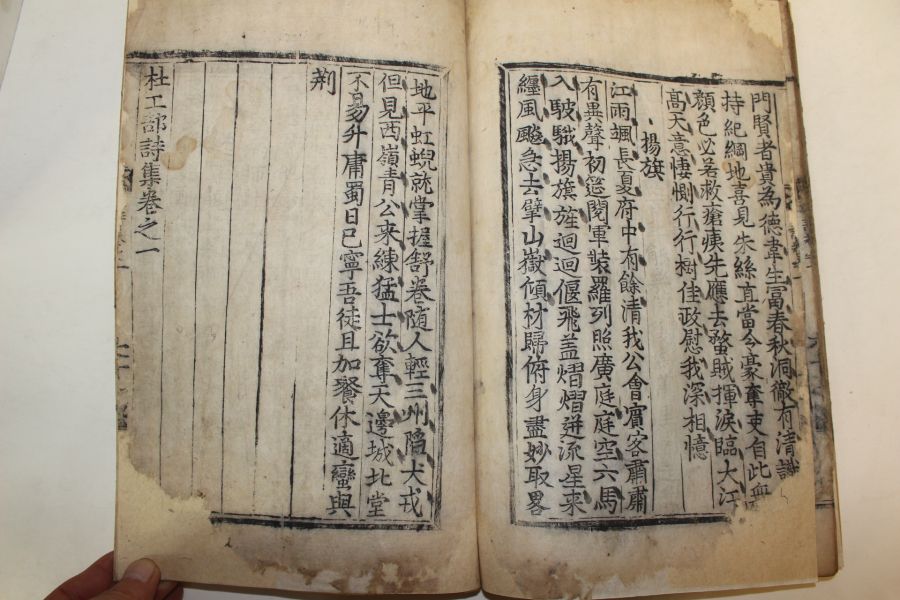 門賢者貴為德韋生富春秋洞徹有清識
持紀綱地喜見朱絲直當令豪奪吏自此無
顏色必若救瘡痍先應去蟊賊揮淚臨大江
高天意悽惻行行樹佳政慰我深相憶
揚旗
江雨颯長夏府中有餘清我公會賓客肅肅
有異聲初筵閱軍裝羅列照廣庭庭空六馬
入駊騀揚旗旌迴迴偃飛盖熠熠迸流星来
纏風飈急去擘山嶽傾材歸俯身盡妙取畧
地平虹蜺就掌握舒卷随人輕三州陷犬戎
但見西嶺青公来練猛士欲奪天邊城此堂
不易升庸蜀日已寧吾徒且加餐休適蠻與
荊
杜工部詩集卷之一